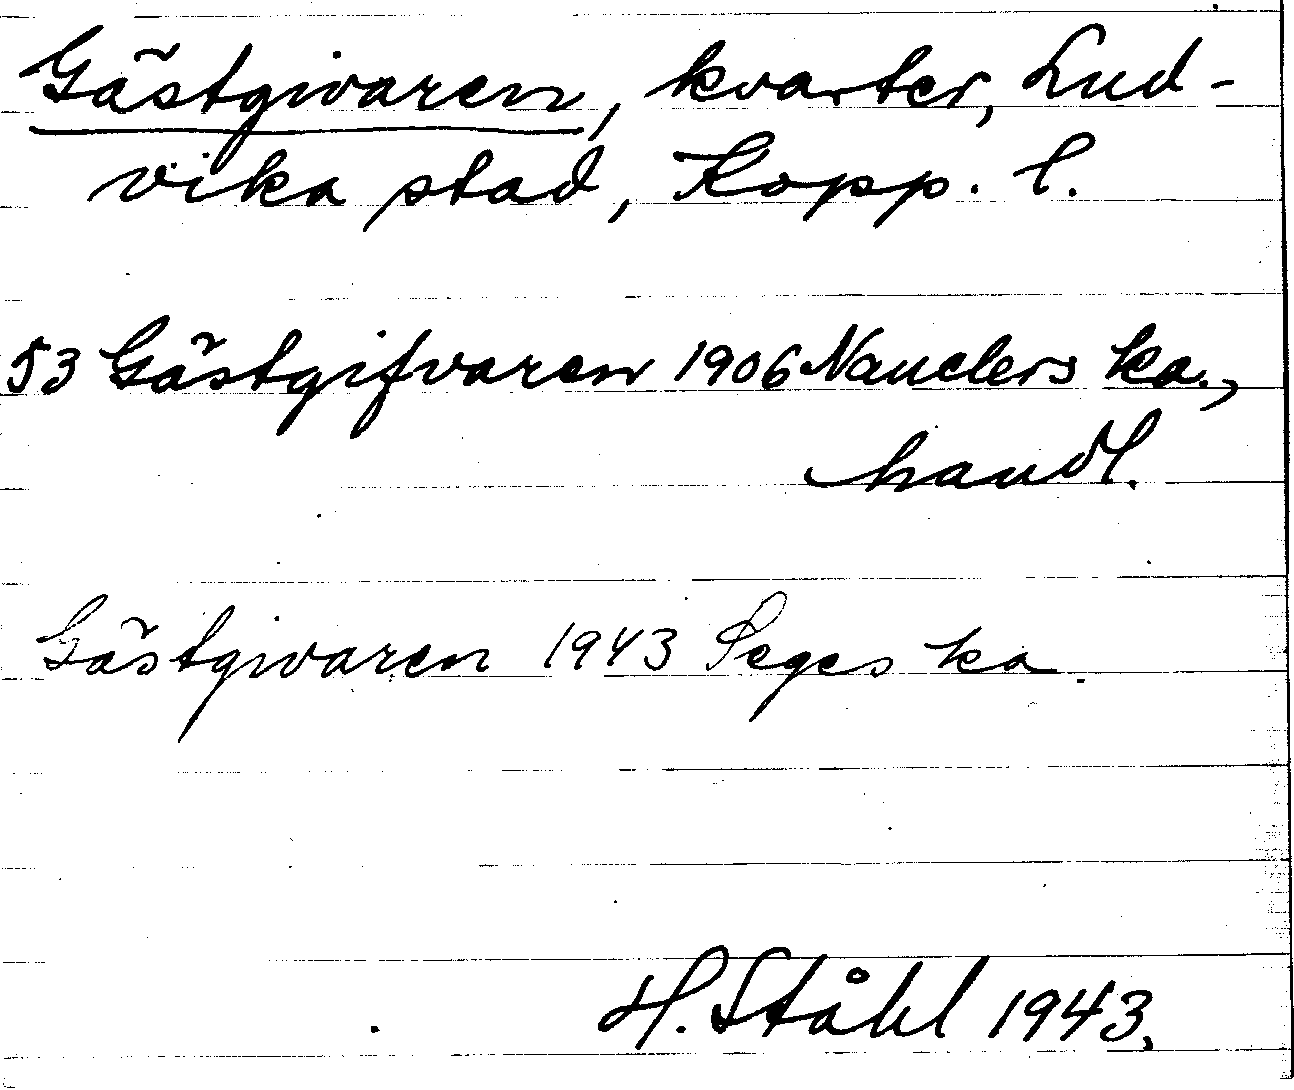 Gästgivaren, kvarter, Lud-
vika stad, Kopp. l.
53 Gästgifvaren 1906 Nauclers ka.,
handl.
Gästgivaren 1943 Seges ka.
H. Ståhl 1943.